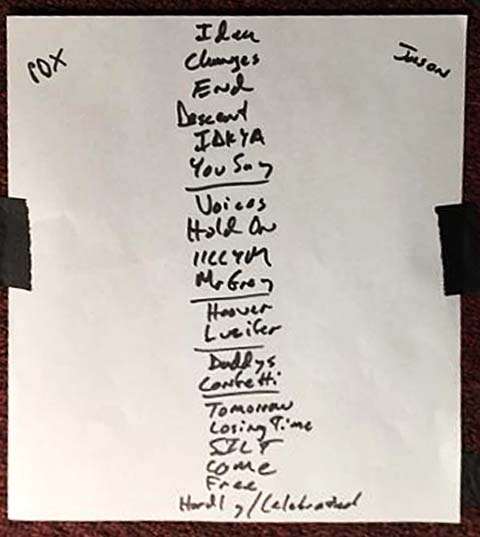 PDX
Jason
Idea
Changes
End
Descent
IDKYA
You Say
Voices
Hold On
IICCYM
Mr Grey
Hoover
Lucifer
Daddys
Confetti
Tomorrow
Losing Time
SILT
Come
Free
Hardly/Celebrated